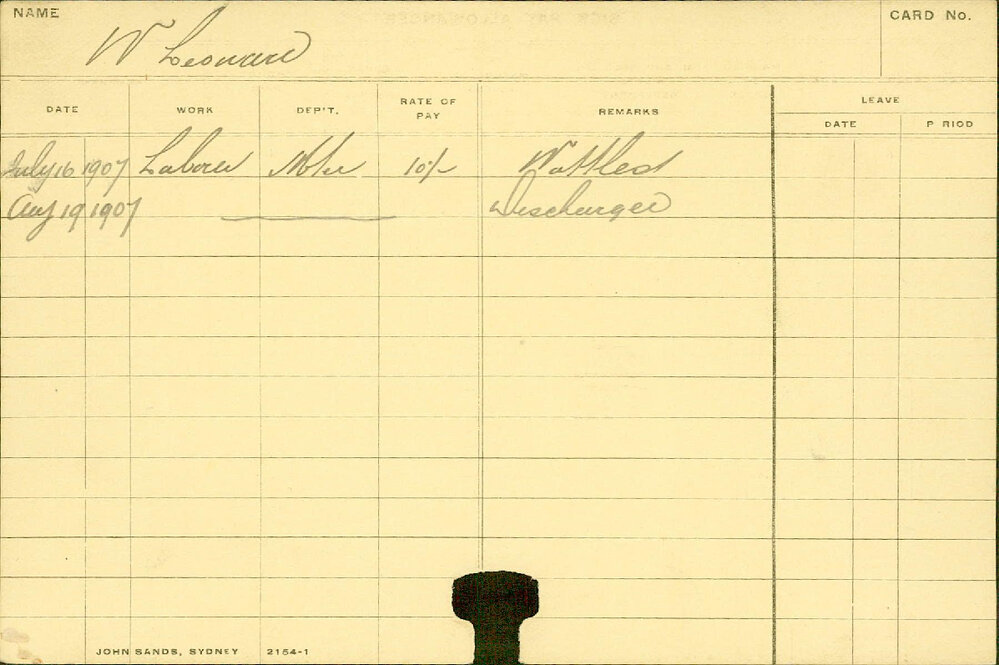 NAME
CARD No.
W Leonard
DATE WORK DEP'T. RATE OF PAY REMARKS LEAVE
DATE P RIOD
July 16 1907 Laborer 10/- Wattled
Aug 19 1907 Discharged
JOHN SANDS, SYDNEY 2154-1